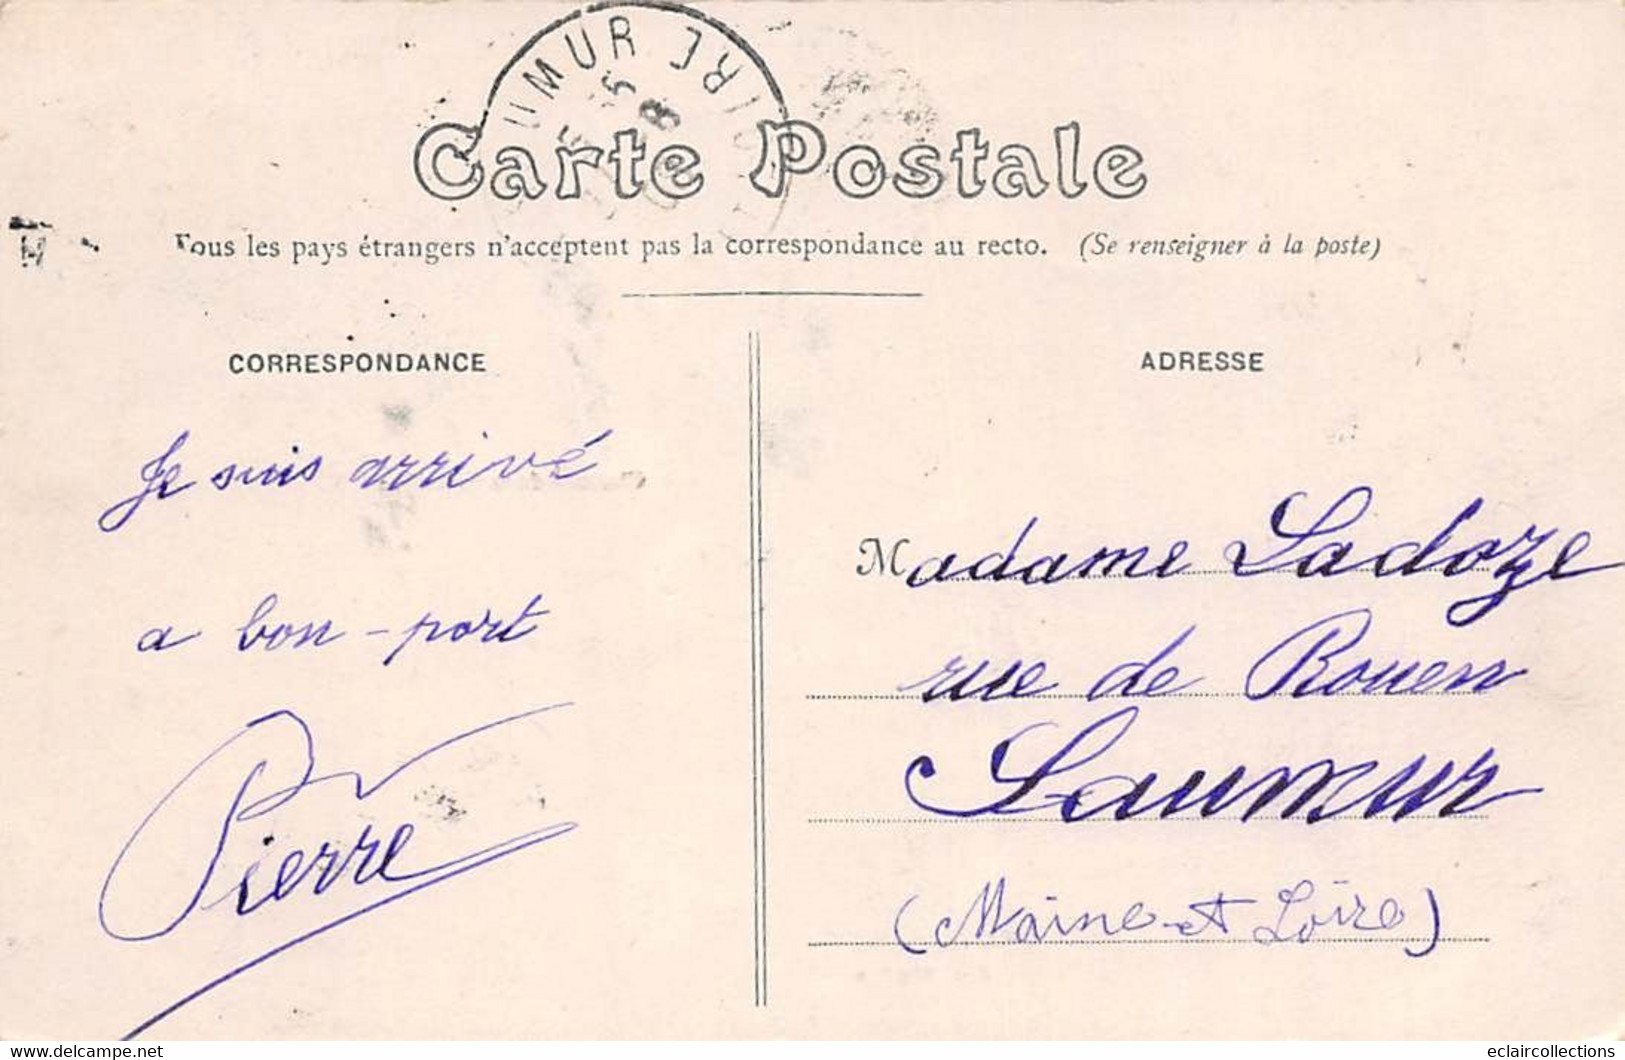 UMUR
Carte Postale
Tous les pays étrangers n'acceptent pas la correspondance au recto. (Se renseigner à la poste)
CORRESPONDANCE
ADRESSE
Je suis arrivé
a bon-port
Pierre
Madame Ladoze
rue de Rouen
Saumur
(Maine et Loire)
eclaircollections